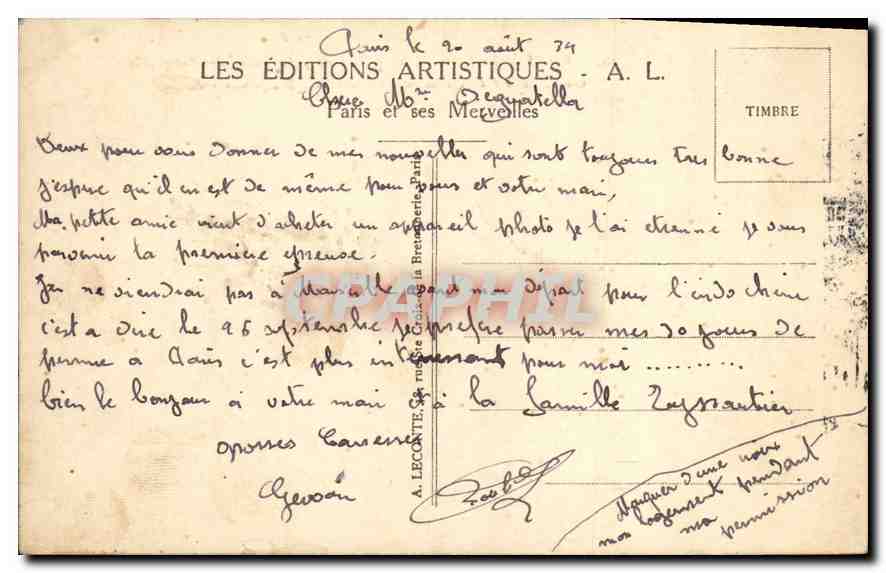 Paris le 20 août 34
LES ÉDITIONS ARTISTIQUES - A. L.
Chere Mme
Paris et ses Merveilles
TIMBRE
Deux pour vous donner de mes nouvelles qui sont toujours tres bonne
j'espere qu'il en est de même pour vous et votre mari,
Ma petite amie vient d'acheter un appareil photo je l'ai etrenné je vous
parvenir la première epreuve.
Je ne viendrai pas à Marseille avant mon départ pour l'indo chine
c'est a dire le 26 septembre je prefere passer mes 20 jours de
perme a Paris c'est plus interessant pour moi ..........
bien le bonjour a votre mari et à la famille
grosses Caresses
A. LECONTE, 38, rue Ste Croix de la Bretonnerie, Paris
CPAPHIL
Marquer d'une croix
mon logement pendant
ma permission